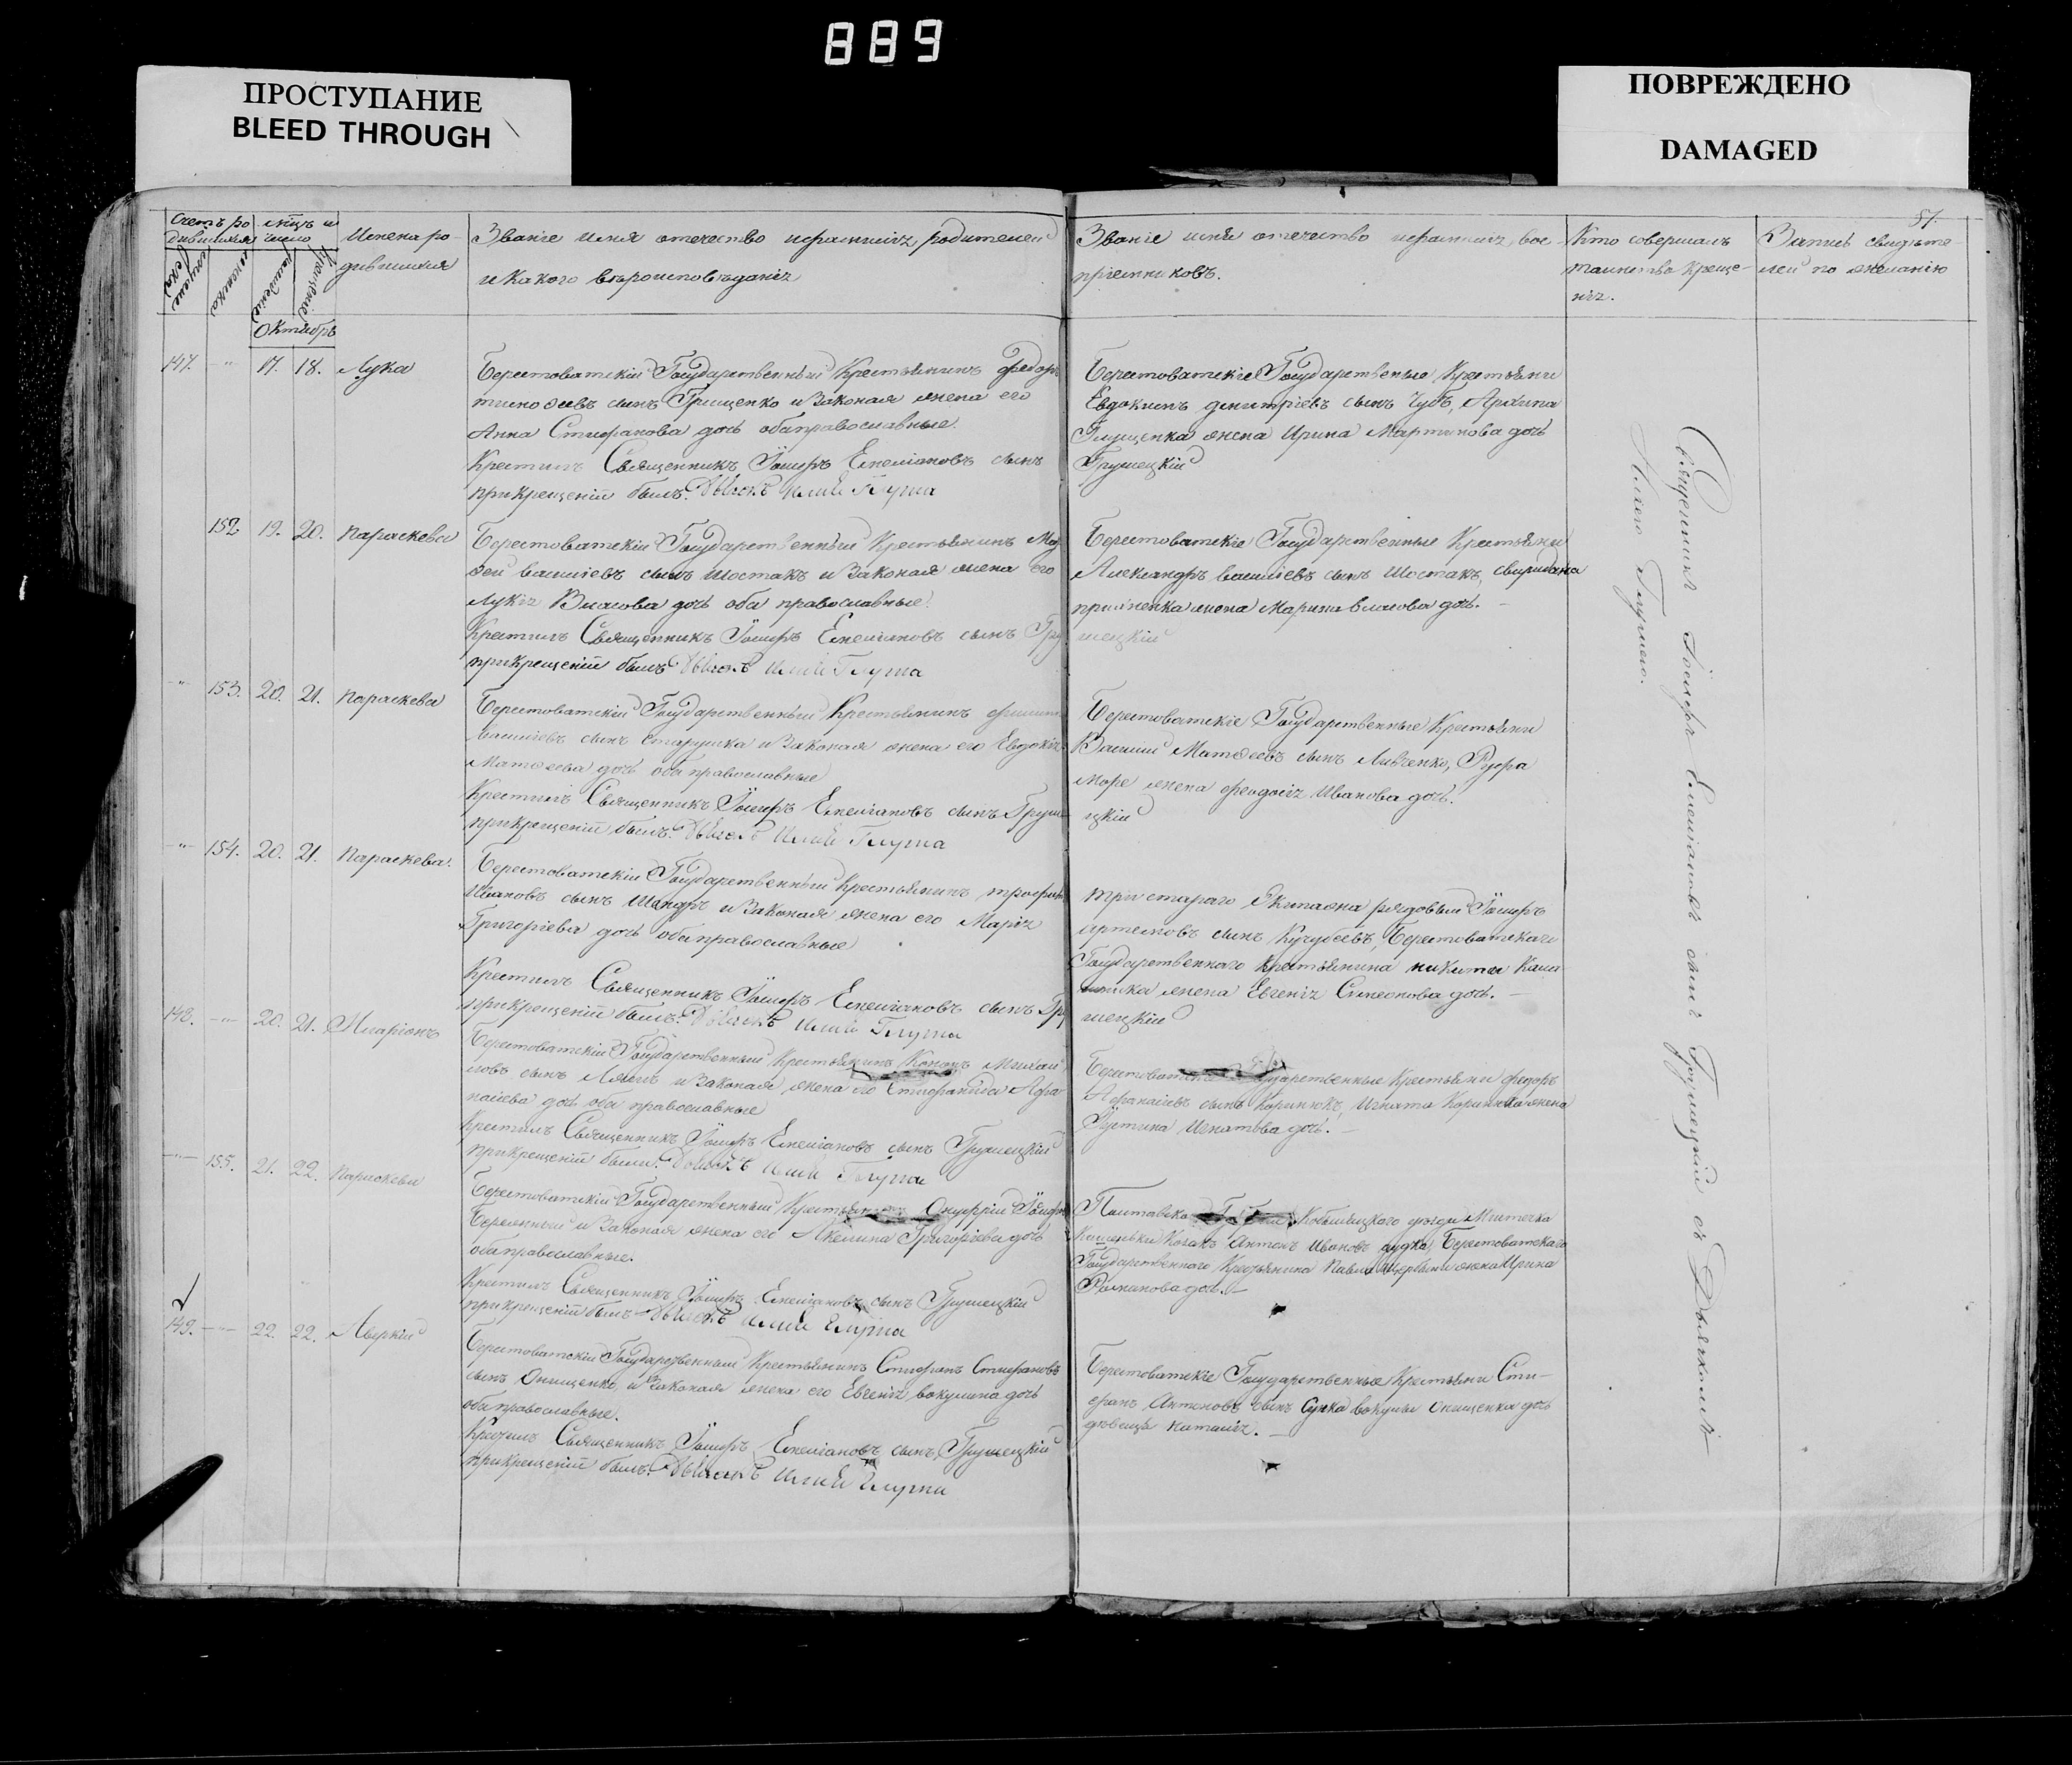 889
ПРОСТУПАНИЕ
BLEED THROUGH
ПОВРЕЖДЕНО
DAMAGED
51.
Счетъ ро
дившихся
мужеска
женска
мѣцъ и
число
рожденіе
крещеніе
Октябрь
Имена ро
дившихся
Званіе имя отечество и фамилія родителей
и какого вѣроисповѣданія
Званіе имя отечество и фамилія вос
пріемниковъ.
Кто совершалъ
таинство креще-
нія.
Запись свидѣте-
лей по желанію
147. " 17. 18. Лука
Берестоватскій Государственный Крестьянинъ Федоръ
тимофеевъ сынъ Грищенко и Законая жена его
Анна Стефанова дочь оба православные.
Крестилъ Священникъ Іосифъ Емеліановъ сынъ
при крещеніи былъ. Дьячокъ Илья Глуша
Берестоватскіе Государственые Крестьяни
Евдокимъ димитріевъ сынъ Чубъ, Архипа
жена Ирина Мартинова дочь
Грушецкій
152 19. 20. Параскева
Берестоватскій Государственный Крестьянинъ
василіевъ сынъ Шостакъ и Законая жена его
Лукія Власова дочь оба православные.
Крестилъ Священникъ Іосифъ Емеліановъ сынъ Гру
при крещеніи былъ Дьячокъ Илья Глуша
Берестоватскіе Государственные Крестьяни
Александръ василіевъ сынъ Шостакъ, свиридана
жена Марина власова дочь. -
шецкій
" 153. 20. 21. Параскева
Берестоватскій Государственный Крестьянинъ
василіевъ сынъ Старушка и Законая жена его Евдокія
Матвеева дочь оба православные
Крестилъ Священникъ Іосифъ Емеліановъ сынъ Груше
при крещеніи былъ. Дьячокъ Илья Глуша
Берестоватскіе Государственные Крестьяни
Василій Матвеевъ сынъ Ливченко,
море жена феодосія Иванова дочь.
цкій
" 154. 20. 21. Параскева.
Берестоватскій Государственный Крестьянинъ
Ивановъ сынъ и Законая жена его Марія
Григоріева дочь оба православные
Крестилъ Священникъ Іосифъ Емеліановъ сынъ Гру
при крещеніи былъ. Дьячокъ Илья Глуша
стараго Экипажа рядовый Іосифъ
артемовъ сынъ Кучубеевъ, Берестоватскаго
Государственнаго крестьянина никиты
жена Евгенія Симеонова дочь. -
шецкій
148. " 20. 21. Иларіонъ
Берестоватскій Государственный Крестьянинъ Кононъ Михаи
ловъ сынъ и Законая жена его Стефанида Афа
насіева дочь оба православные
Крестилъ Священникъ Іосифъ Емеліановъ сынъ Грушецкій
при крещеніи былъ. Дьячокъ Илья Глуша
Государственные Крестьяни федоръ
Афанасіевъ сынъ Коринюкъ, Игната жена
Іустина Игнатова дочь. -
" 155. 21. 22. Параскева
Берестоватскій Государственный Онуфрій Іосифо
и Законая жена его Акелина Григоріева дочь
оба православные.
Крестилъ Священникъ Іосифъ Емеліановъ сынъ Грушецкій
при крещеніи былъ Дьячокъ Илья Глуша
Кобыляцкого уезда Мистечка
Козакъ Антонъ Ивановъ дудка, Берестоватскаго
Государственнаго Крестьянина Павла жена Ирина
дочь. -
149. " 22. 22. Аверкій
Берестоватскій Государственный Крестьянинъ Стефанъ Стефановъ
сынъ Онищенко, и Законая жена его Евгенія вакулина дочь
оба православные.
Крестилъ Священникъ Іосифъ Емеліановъ сынъ Грушецкій
при крещеніи былъ. Дьячокъ Илья Глуша
Берестоватскіе Государственные Крестьяни Сте-
фанъ Антоновъ сынъ вакулы Онищенка дочь
девица наталія. -
Священникъ Іосифъ Емеліановъ сынъ Грушецкій съ Дьячкомъ
Ильею Глушею.